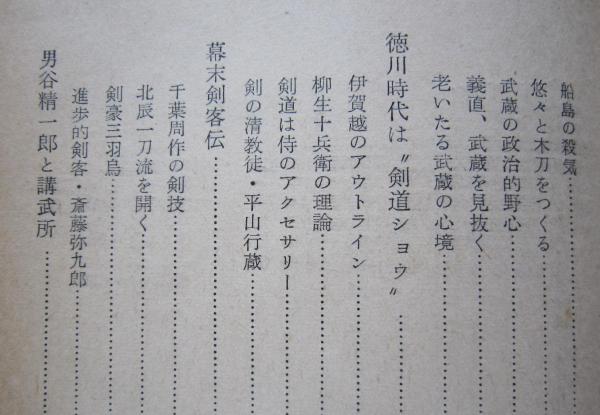 船島の殺気
悠々と木刀をつくる
武蔵の政治的野心
義直、武蔵を見抜く
老いたる武蔵の心境
徳川時代は〝剣道ショウ〟
伊賀越のアウトライン
柳生十兵衛の理論
剣道は侍のアクセサリー
剣の清教徒・平山行蔵
幕末剣客伝
千葉周作の剣技
北辰一刀流を開く
剣豪三羽烏
進歩的剣客・斎藤弥九郎
男谷精一郎と講武所